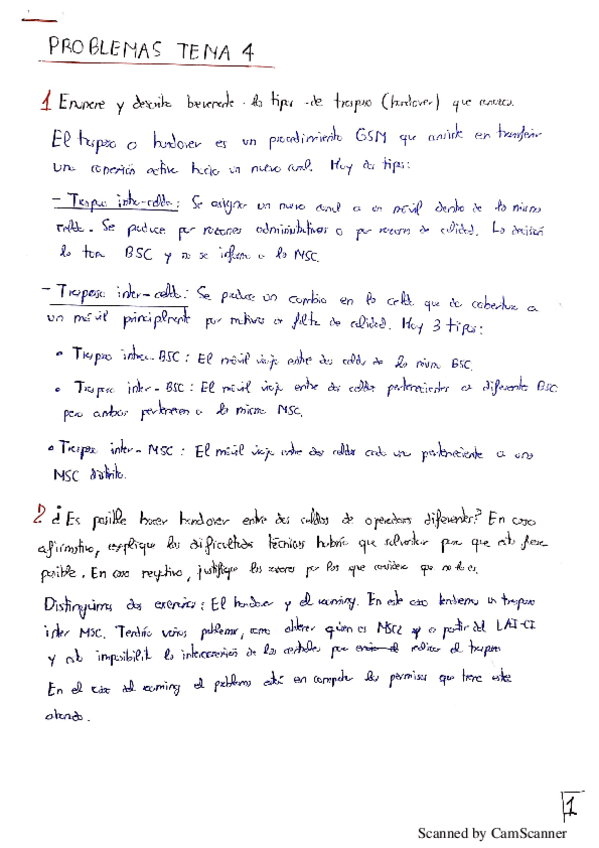 PROBLEMAS TEMA 4
1 Enumere y describa brevemente los tipos de traspaso (handover) que conozca.
El traspaso o handover es un procedimiento GSM que consiste en transferir
una conexión activa hacia un nuevo canal. Hay dos tipos:
- Traspaso intra-celda: Se asigna un nuevo canal a un móvil dentro de la misma
celda. Se produce por razones administrativas o por razones de calidad. La decisión
la toma BSC y no se informa a la MSC.
- Traspaso inter-celda: Se produce un cambio en la celda que da cobertura a
un móvil principalmente por motivos de falta de calidad. Hay 3 tipos:
• Traspaso intra-BSC: El móvil viaja entre dos celdas de la misma BSC.
• Traspaso inter-BSC: El móvil viaja entre dos celdas pertenecientes a diferente BSC
pero ambas pertenecen a la misma MSC.
• Traspaso inter-MSC: El móvil viaja entre dos celdas cada una perteneciente a una
MSC distinta.
2 ¿Es posible hacer handover entre dos celdas de operadores diferentes? En caso
afirmativo, explique las dificultades técnicas habría que solventar para que esto fuera
posible. En caso negativo, justifique las razones por las que considera que no lo es.
Distinguimos dos escenarios: El handover y el roaming. En este caso tendremos un traspaso
inter MSC. Tendría varios problemas, como obtener quien es MSC2 a partir del LAI-CI
y la imposibilidad la interconexión de las centrales para realizar el traspaso
En el caso del roaming el problema está en comprobar los permisos que tiene este
abonado.
1
Scanned by CamScanner